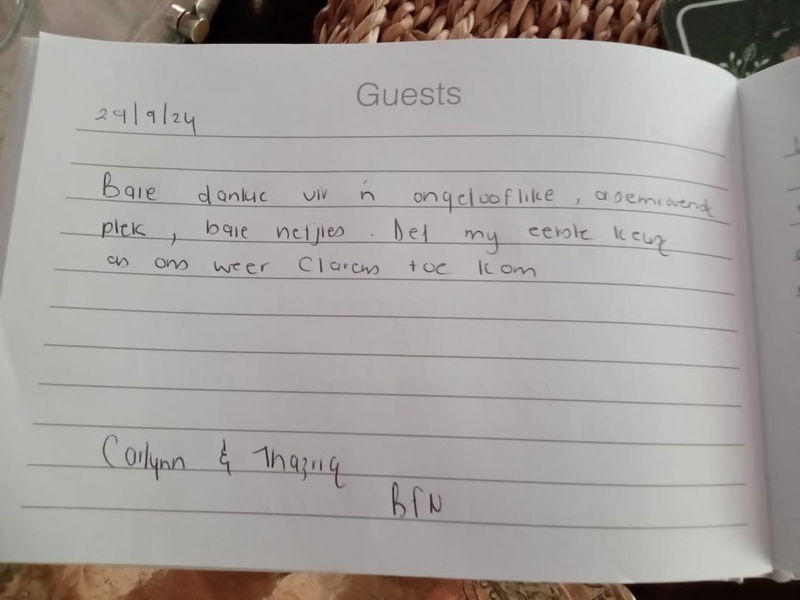 Guests
29/9/24
Baie dankie vir 'n ongelooflike, asemrowend
plek, baie netjies. Def my eerste keuse
as ons weer Clarens toe kom
Cailynn & Thaziiq
BFN